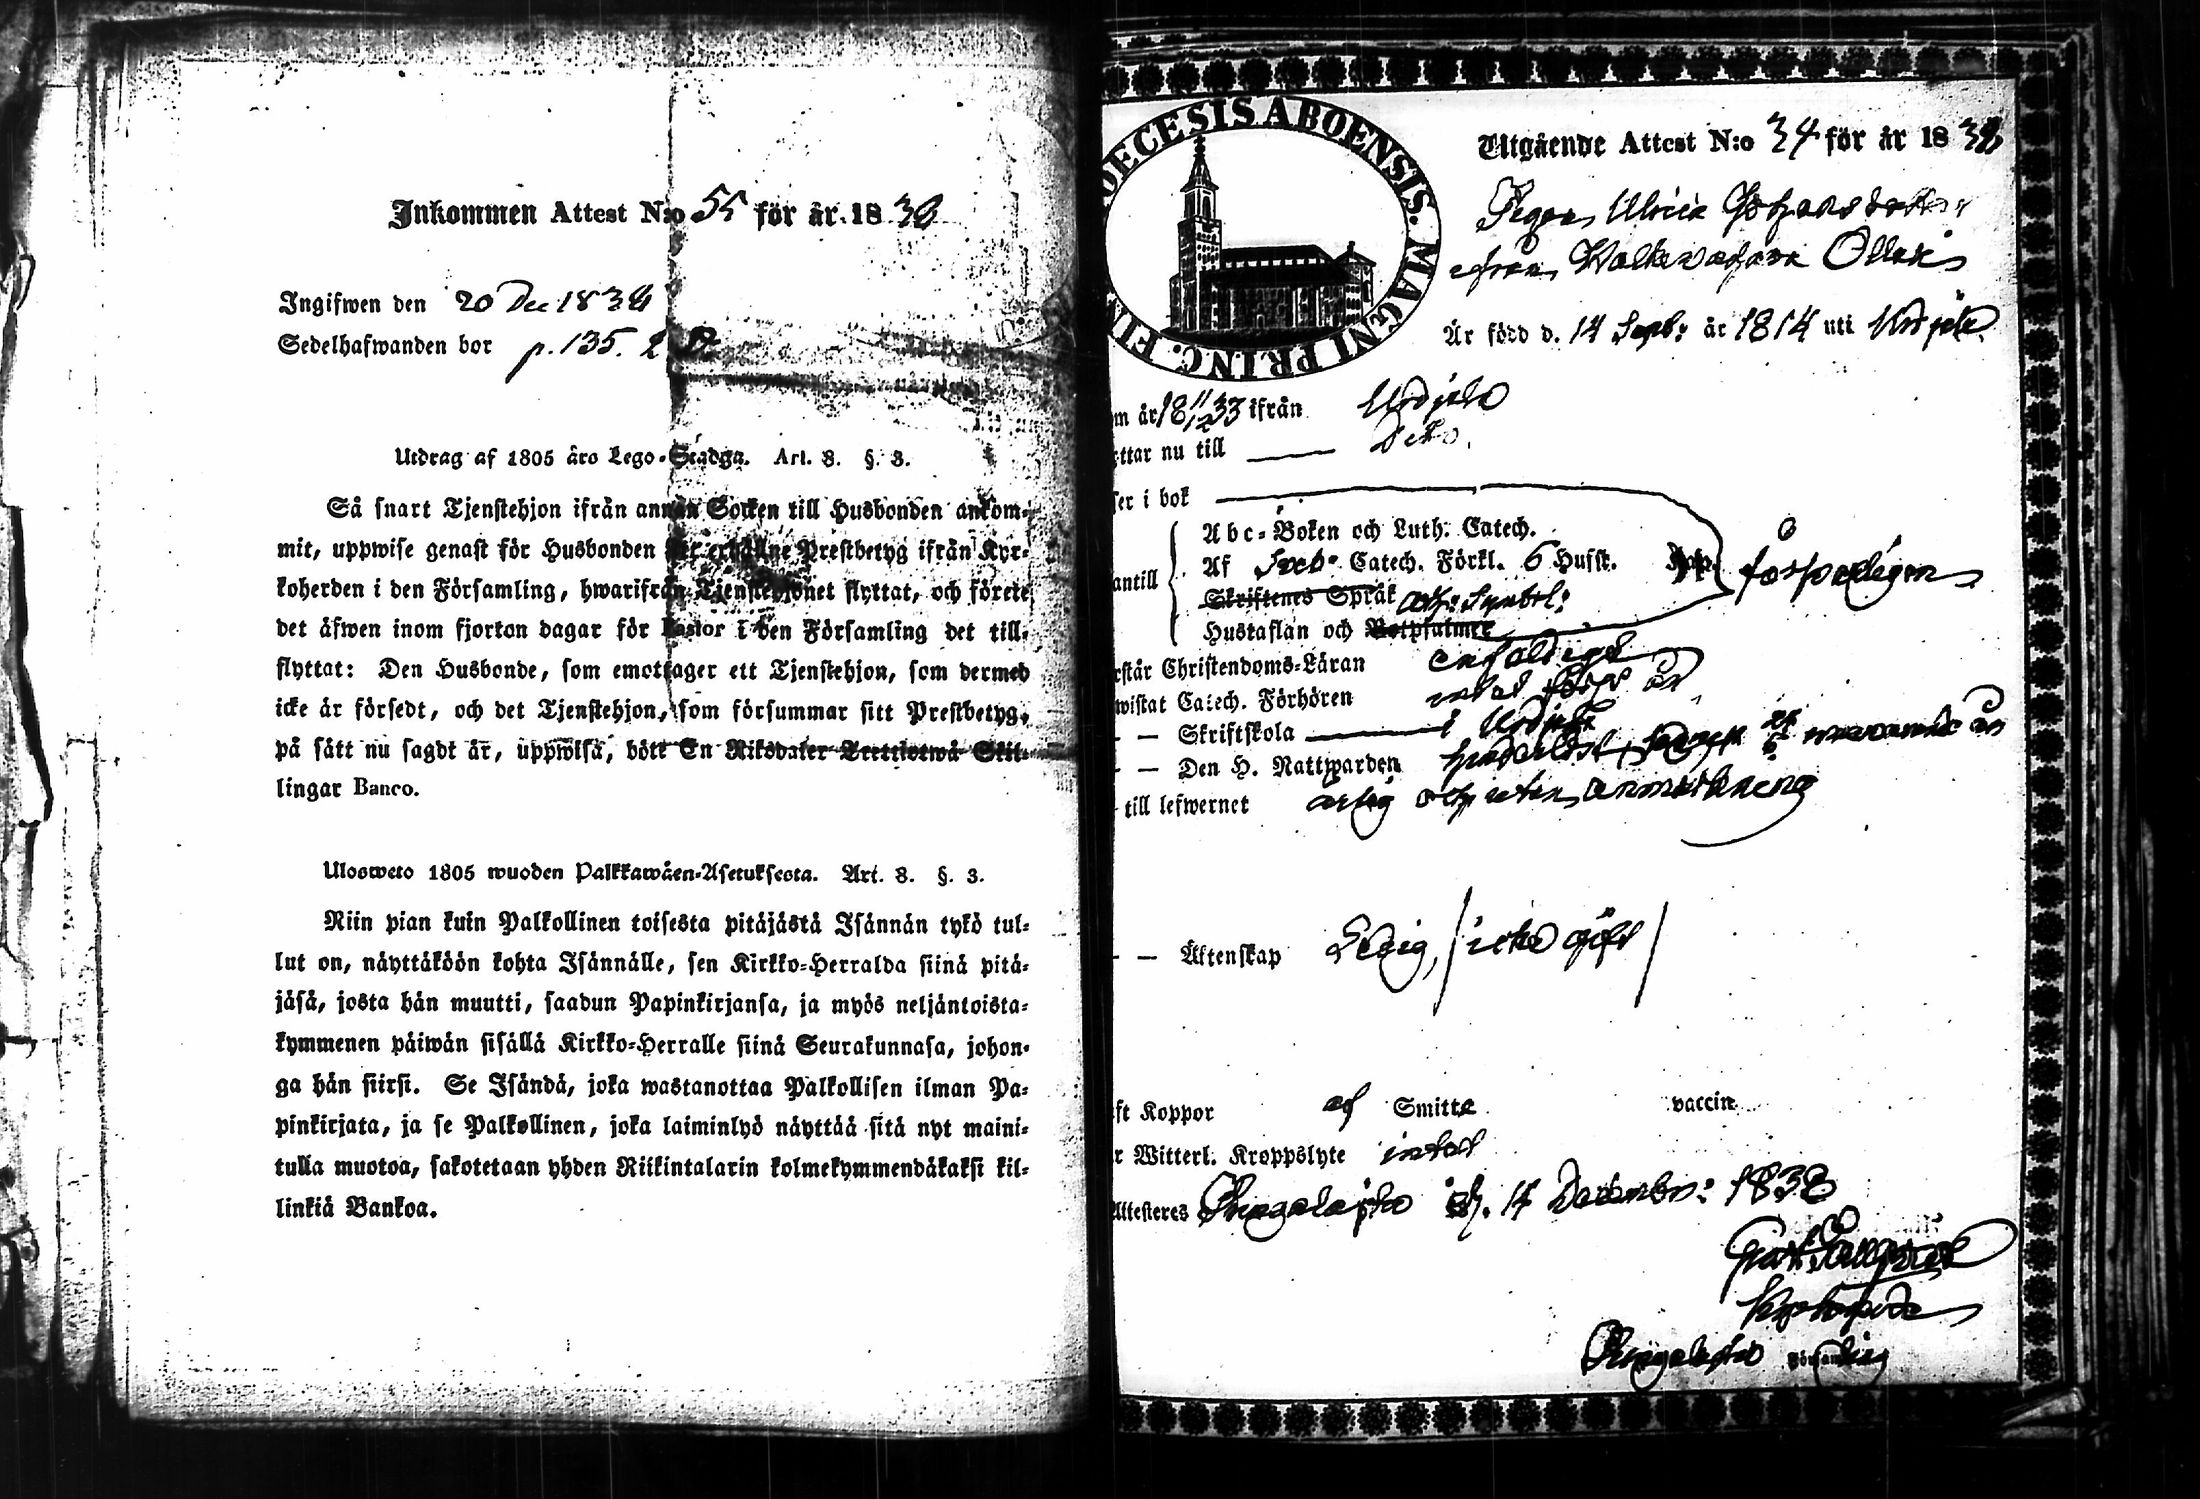 Inkommen Attest N:o 55 för år 1838
Ingifwen den 20 Dec 1838
Sedelhafwanden bor p. 135. 2
Utdrag af 1805 års Lego-Stadga. Art. 8. §. 3.
Så snart Tjenstehjon ifrån annan Socken till Husbonden ankom-
mit, uppwise genast för Husbonden det erhållne Prestbetyg ifrån Kyr-
koherden i den Församling, hwarifrån Tjenstehjonet flyttat, och förete
det äfwen inom fjorton dagar för Pastor i den Församling det till-
flyttat: Den Husbonde, som emottager ett Tjenstehjon, som dermed
icke är försedt, och det Tjenstehjon, som försummar sitt Prestbetyg,
på sätt nu sagdt är, uppwisa, böte En Riksdaler Trettiotwå Skil-
lingar Banco.
Ulosweto 1805 wuoden Palkkawäen-Asetuksesta. Art. 8. §. 3.
Niin pian kuin Palkollinen toisesta pitäjästä Isännän tykö tul-
lut on, näyttäköön kohta Isännälle, sen Kirkko-Herralda siinä pitä-
jäsä, josta hän muutti, saadun Papinkirjansa, ja myös neljäntoista-
kymmenen päiwän sisällä Kirkko-Herralle siinä Seurakunnasa, johon-
ga hän siirsi. Se Isändä, joka wastanottaa Palkollisen ilman Pa-
pinkirjata, ja se Palkollinen, joka laiminlyö näyttää sitä nyt maini-
tulla muotoa, sakotetaan yhden Riikintalarin kolmekymmendäkaksi kil-
linkiä Bankoa.
DECESIS ABOENSIS. MAGNI PRINC. FIN
Utgående Attest N:o 34 för år 1838
Pigan Ulrica Johansdotter
ifrån
Är född d. 14 Sept: år 1814 uti Urdjala
m år 18 11/12 33 ifrån Urdjala
ttar nu till Dito.
ser i bok
antill
Abc-Boken och Luth. Catech.
Af Sveb. Catech. Förkl. 6 Hufst.
Skriftenes Språk ath: Symbol:
Hustaflan och Botpsalmer
försvarligen
rstår Christendoms-Läran enfaldigt
wistat Catech. Förhören
- - Skriftskola i Urdjala
- - Den H. Nattwarden
till lefwernet ärlig och utan anmärkning
- - Äktenskap Ledig, /icke gift/
ft Koppor af Smitta vaccin
r Witterl. Kroppslyte intet
Attesteras Kangalajsa d. 14 December: 1838
Kyrkoherde
Kangalajsa Församling